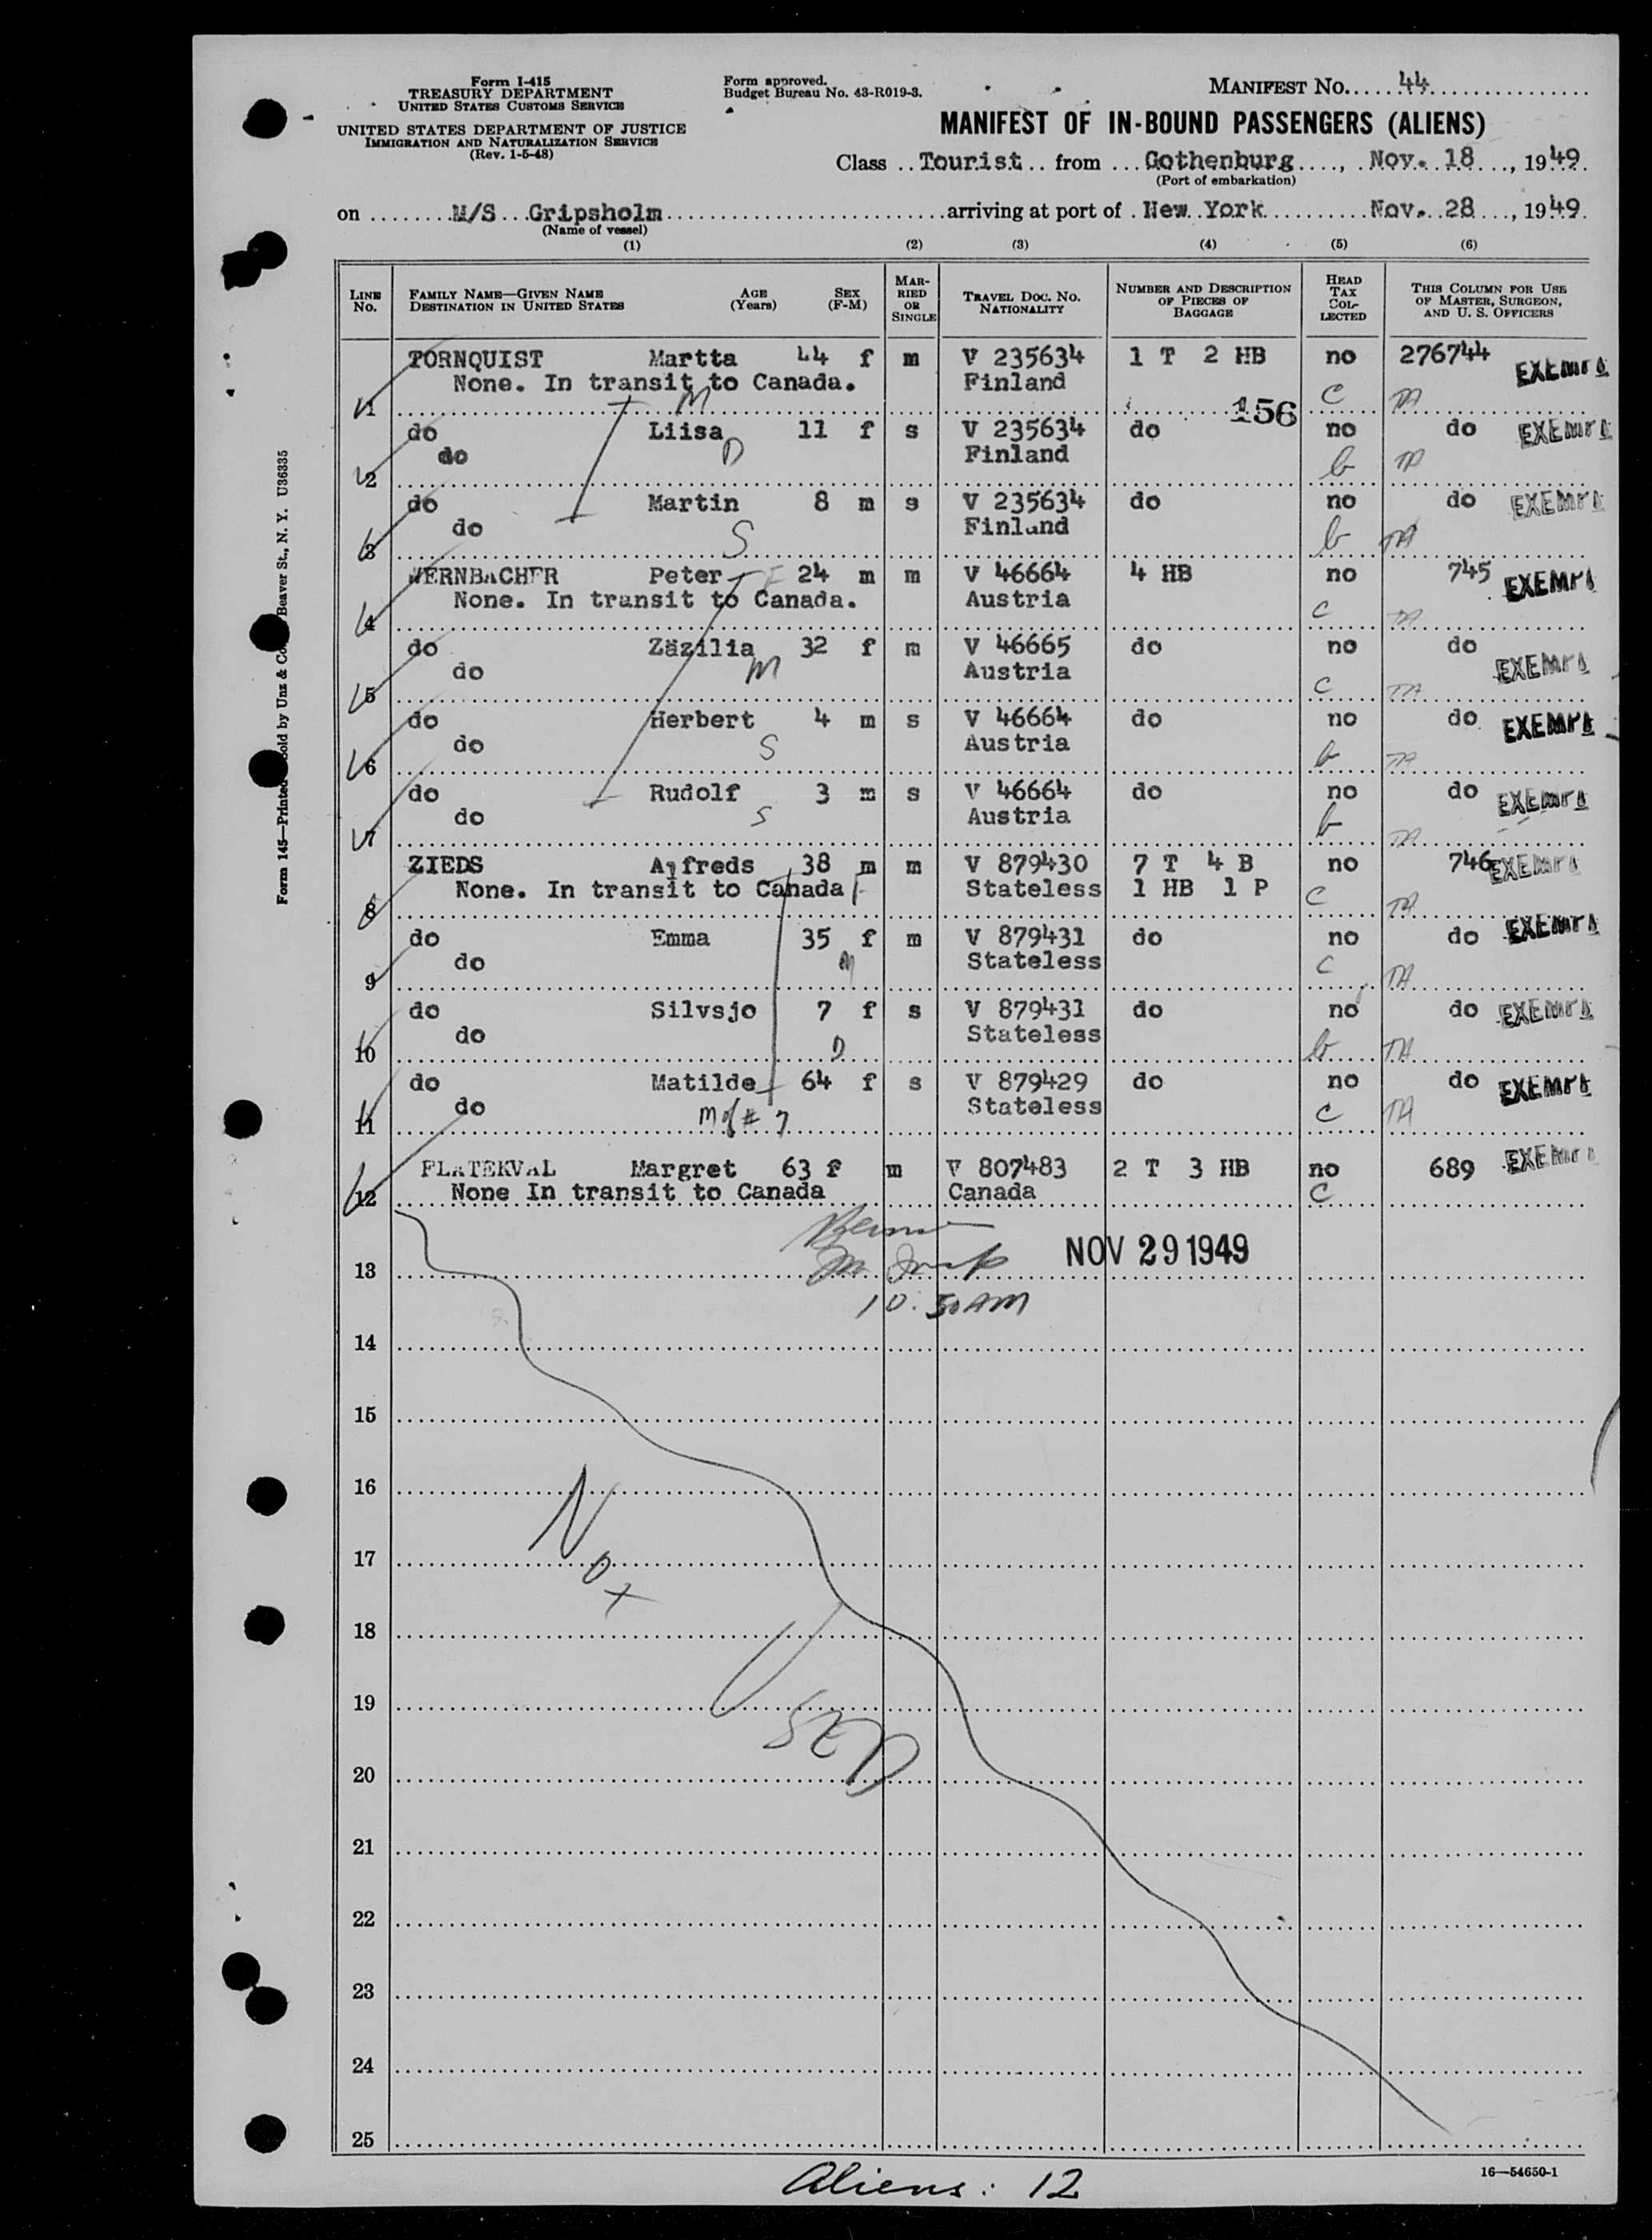 Form I-415
TREASURY DEPARTMENT
UNITED STATES CUSTOMS SERVICE
UNITED STATES DEPARTMENT OF JUSTICE
IMMIGRATION AND NATURALIZATION SERVICE
(Rev. 1-5-48)
Form approved.
Budget Bureau No. 43-R019-3.
MANIFEST No. 44
MANIFEST OF IN-BOUND PASSENGERS (ALIENS)
Class Tourist from Gothenburg, Nov. 18, 1949
(Port of embarkation)
on M/S Gripsholm arriving at port of New York Nov. 28, 1949
(Name of vessel)
(1) (2) (3) (4) (5) (6)
LINE No. FAMILY NAME—GIVEN NAME DESTINATION IN UNITED STATES AGE (Years) SEX (F-M) MARRIED OR SINGLE TRAVEL DOC. NO. NATIONALITY NUMBER AND DESCRIPTION OF PIECES OF BAGGAGE HEAD TAX COLLECTED THIS COLUMN FOR USE OF MASTER, SURGEON, AND U. S. OFFICERS
TORNQUIST Martta 44 f m V 235634 1 T 2 HB no 276744 EXEMPT
None. In transit to Canada. Finland
1 M 156 C TA
do Liisa 11 f s V 235634 do no do EXEMPT
do D Finland
2 b TA
do Martin 8 m s V 235634 do no do EXEMPT
do Finland
3 S b TA
WERNBACHER Peter F 24 m m V 46664 4 HB no 745 EXEMPT
None. In transit to Canada. Austria
4 C TA
do Zäzilia 32 f m V 46665 do no do EXEMPT
do M Austria
5 C TA
do Herbert 4 m s V 46664 do no do EXEMPT
do S Austria
6 b TA
do Rudolf 3 m s V 46664 do no do EXEMPT
do S Austria
7 b TA
ZIEDS Alfreds 38 m m V 879430 7 T 4 B no 746 EXEMPT
None. In transit to Canada F Stateless 1 HB 1 P
8 C TA
do Emma 35 f m V 879431 do no do EXEMPT
do M Stateless
9 C TA
do Silvsjo 7 f s V 879431 do no do EXEMPT
do Stateless
10 D b TA
do Matilde 64 f s V 879429 do no do EXEMPT
do M of # 7 Stateless
11 C TA
FLATEKVAL Margret 63 f m V 807483 2 T 3 HB no 689 EXEMPT
12 None In transit to Canada Canada C
NOV 29 1949
13
10.30 AM
14
15
16
17
18
19
20
21
22
23
24
25
Not USED
Aliens: 12
16—54650-1